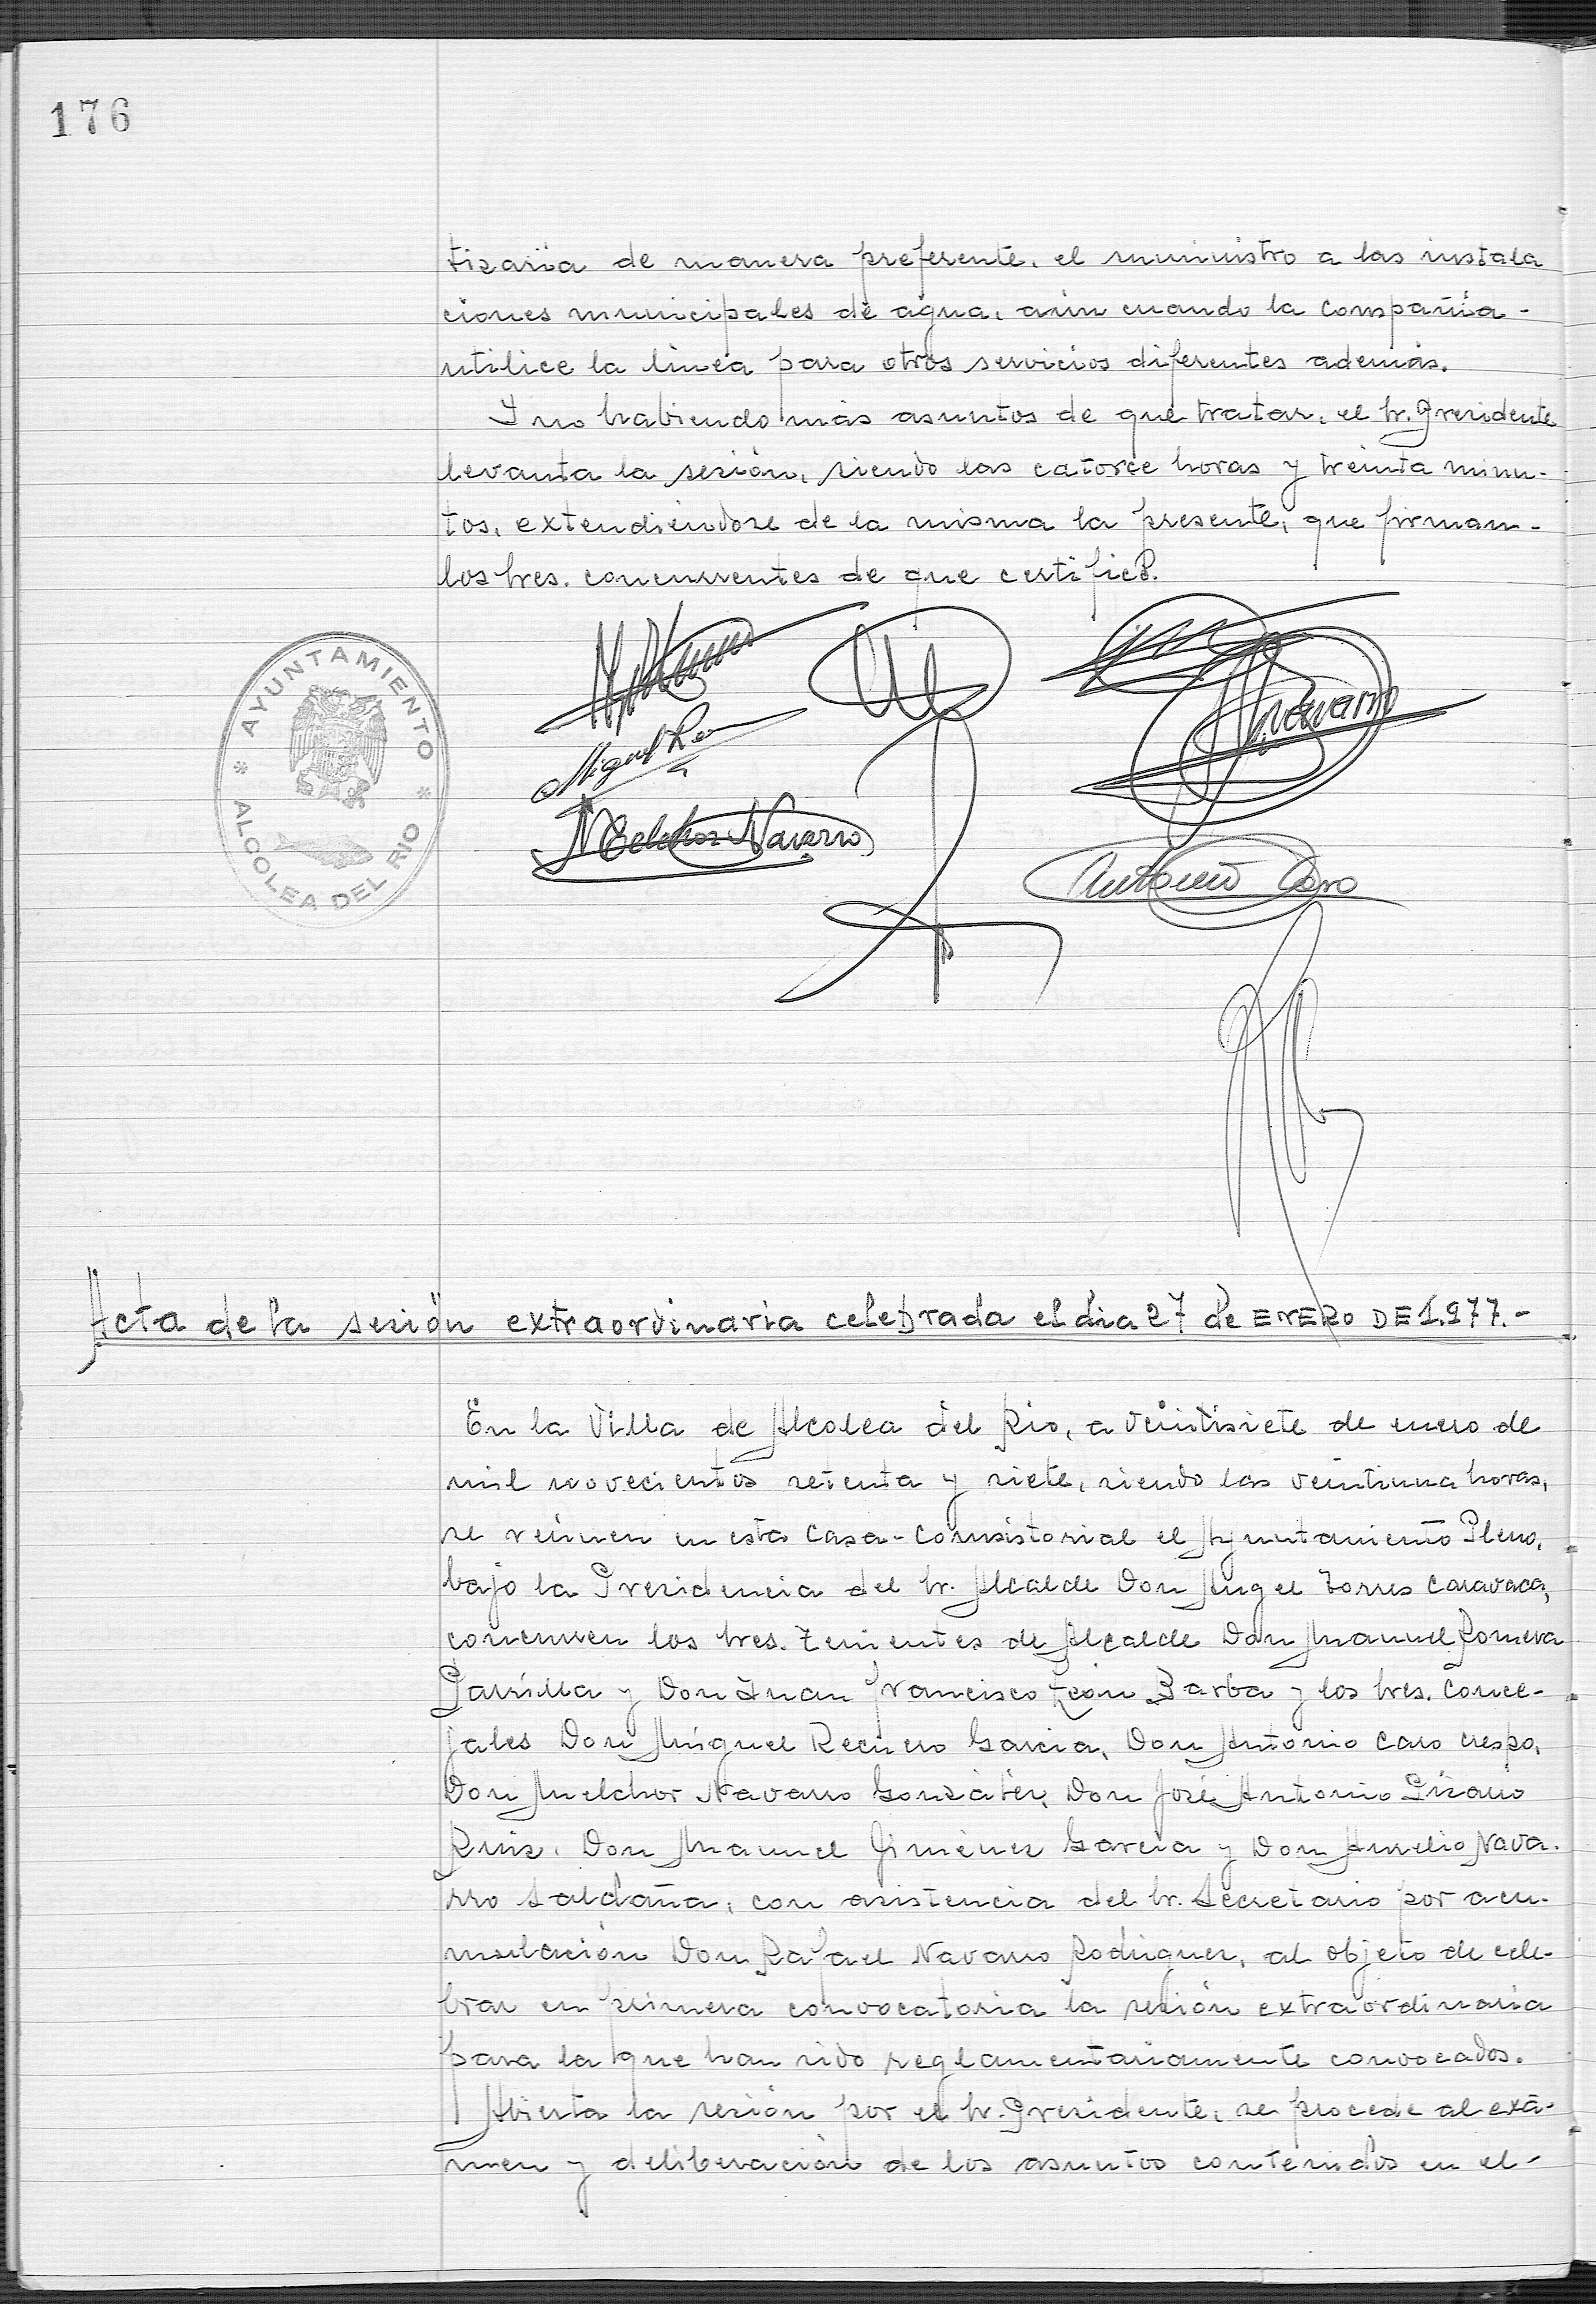 176
tizaría de manera preferente, el suministro a las instala
ciones municipales de agua, aún cuando la compañía-
utilice la línea para otros servicios diferentes además.
Y no habiendo más asuntos de que tratar, el Sr. Presidente
levanta la sesión, siendo las catorce horas y treinta minu-
tos, extendiéndose de la misma la presente, que firman-
los Sres. concurrentes de que certifico.
* AYUNTAMIENTO *
ALCOLEA DEL RIO
Navarro
Miguel
Melchor Navarro
Antonio Caro
Acta de la sesión extraordinaria celebrada el dia 27 de ENERO DE 1.977.-
En la Villa de Alcolea del Rio, a veintisiete de enero de
mil novecientos setenta y siete, siendo las veintiuna horas,
se reúnen en esta Casa-Consistorial el Ayuntamiento Pleno,
bajo la Presidencia del Sr. Alcalde Don Angel Torres Caravaca,
concurren los Sres. Tenientes de Alcalde Don Manuel Romera
Parrilla y Don Juan Francisco León Barba y los Sres. Conce-
jales Don Miguel Recuero Garcia, Don Antonio Caro Crespo,
Don Melchor Navarro González, Don José Antonio
Ruiz, Don Manuel Giménez Garcia y Don Aurelio Nava-
rro Saldaña, con asistencia del Sr. Secretario por acu-
mulación Don Rafael Navarro Rodriguez, al objeto de cele-
brar en primera convocatoria la sesión extraordinaria
para la que han sido reglamentariamente convocados.
Abierta la sesión por el Sr. Presidente, se procede al exá-
men y deliberación de los asuntos contenidos en el-